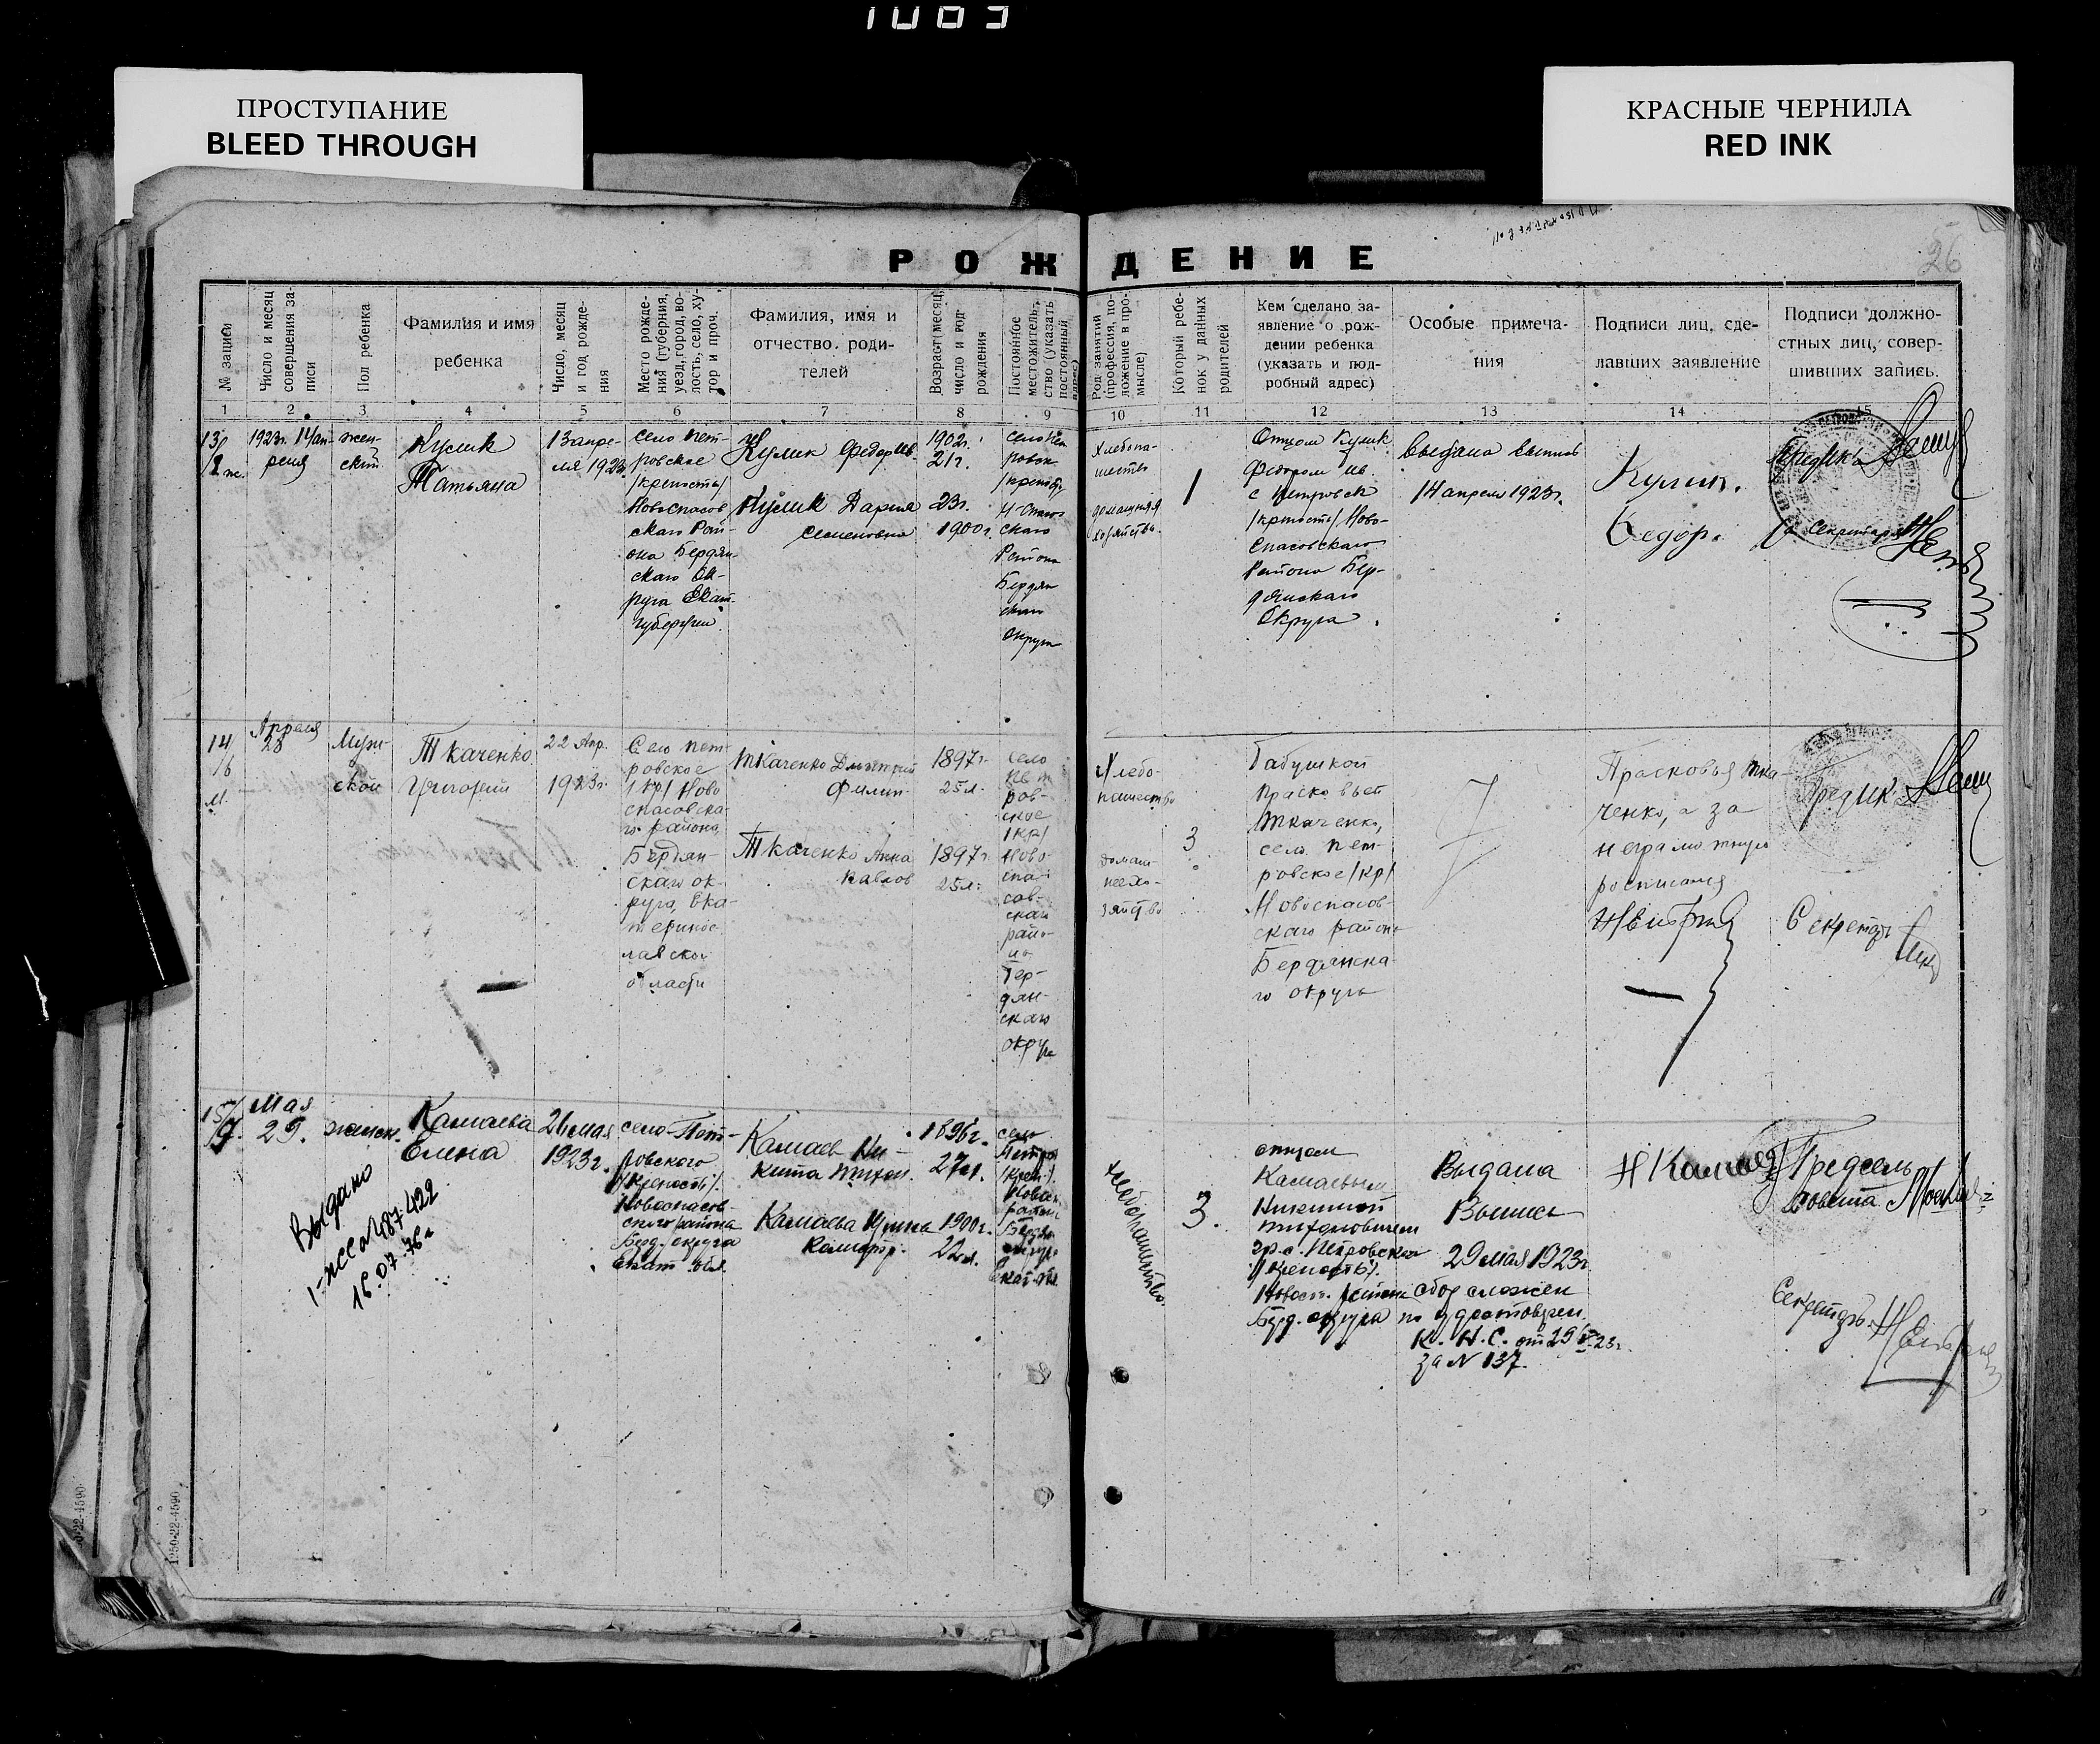 1083
ПРОСТУПАНИЕ
BLEED THROUGH
КРАСНЫЕ ЧЕРНИЛА
RED INK
26
РОЖДЕНИЕ
№ записи
Число и месяц совершения записи
Пол ребенка
Фамилия и имя
ребенка
Число, месяц
и год рожде-
ния
Место рожде-
ния (губерния,
уезд, город, во-
лость, село, ху-
тор и проч.
Фамилия, имя и
отчество роди-
телей
Возраст (месяц,
число и год
рождения
Постоянное
местожитель-
ство (указать
постоянный
адрес)
Род занятий
(профессия, по-
ложение в про-
мысле)
Который ребе-
нок у данных
родителей
Кем сделано за-
явление о рож-
дении ребенка
(указать и под-
робный адрес)
Особые примеча-
ния
Подписи лиц, сде-
лавших заявление
Подписи должно-
стных лиц, совер-
шивших запись.
1 2 3 4 5 6 7 8 9 10 11 12 13 14 15
13/
1923г. 14 ап-
реля
жен-
ский
Кулик
Татьяна
13 апре-
ля 1923г.
село Пет-
ровское
/крепость/
Новоспасов
скаго Рай-
она Бердян-
скаго Ок-
руга Екат.
губернии.
Кулик Федор Ив.
Кулик Дария
Семеновна
1902г.
21г.
23г.
1900г.
скаго
Района
Бердян
скаго
Округа
Хлебопа-
шество
домашняя
хозяйства
1
Отцом Кулик
Федором Ив.
с Петровск
/крепость/ Ново-
Спасовскаго
Района Бер-
дянскаго
Округа.
Выдана выпись
14 апреля 1923г.
Кулик.
Федор.
14/
6
м.
Апреля
28
Муж-
ской
Ткаченко
Григорий
22 Апр.
1923г.
Село Пет-
ровское
/кр/ Ново
спасовска-
го района
Бердян-
скаго ок-
руга, Ека-
теринос
лавской
области
Ткаченко Дмитрий
Филип.
Ткаченко Анна
Павлов
1897г.
25л.
1897г.
25л.
село
Пет
ров-
ское
/кр/
Ново-
спа-
сов-
скаго
райо-
на
Бер-
дян-
скаго
округа
Хлебо-
пашество
домаш-
нее хо-
зяйство
3
Бабушкой
Прасковьей
Ткаченко,
село Пет-
ровское /кр/
Новоспасов-
скаго района
Бердянска-
го округа
Прасковья Тка-
ченко, а за
неграмотную
росписался
Секретарь
15/
9.
Мая
29.
женск.
Камаева
Елена
26 мая
1923г.
село Пет-
ровского
/крепость/.
Новоспасов-
ского района
Берд. округа
Екат. обл.
Камаев Ни-
кита Тихон.
Камаева
1896г.
27л.
1900г.
22л.
Хлебопашество.
3.
отцом
Камаевым
Никитой
Тихоновичем
гр. с. Петровского
/крепость/.
Новосп. района
Берд. округа
Выдана
Выпись
29 мая 1923г
сбор сложен
по удостоверен.
К. Н. С. от 29/V-23г.
за N 137.
Н Камаев
Председ.
Совета
Секретарь.
Выдано
1-жса 487422
16.07.76г